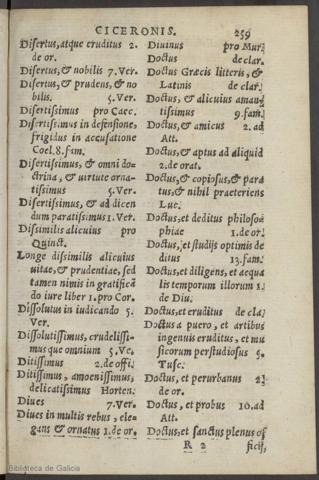 CICERONIS. 259
Disertus, atque eruditus 2.
de or.
Disertus, & nobilis 7. Ver.
Disertus, & prudens, & no
bilis. 5. Ver.
Disertissimus pro Caec.
Disertissimus in defensione,
frigidus in accusatione
Coel. 8. fam.
Disertissimus, & omni do-
ctrina, & uirtute orna-
tissimus 5. Ver.
Disertissimus, & ad dicen
dum paratissimus 1. Ver.
Dissimilis alicuius pro
Quinct.
Longe dissimilis alicuius
uitae, & prudentiae, sed
tamen nimis in gratificã
do iure liber 1. pro Cor.
Dissolutus in iudicando 5.
Ver.
Dissolutissimus, crudelissi-
mus que omnium 5. Ve.
Ditissimus 2. de offi.
Ditissimus, amoenissimus,
delicatissimus Horten.
Diues 7. Ver.
Diues in multis rebus, ele-
gans & ornatus 1. de or.
Diuinus pro Mur.
Doctus de clar.
Doctus Graecis litteris, &
Latinis de clar.
Doctus, & alicuius aman-
tissimus 9. fam.
Doctus, & amicus 2. ad
Att.
Doctus, & aptus ad aliquid
2. de orat.
Doctus, & copiosus, & para
tus, & nihil praeteriens
Luc.
Doctus, et deditus philoso-
phiae 1. de or.
Doctus, et studijs optimis de
ditus 13. fam.
Doctus, et diligens, et aequa
lis temporum illorum 1.
de Diu.
Doctus, et eruditus de cla.
Doctus a puero, et artibus
ingenuis eruditus, et mu
sicorum perstudiosus 5.
Tusc.
Doctus, et perurbanus 2.
de or.
Doctus, et probus 10. ad
Att.
Doctus, et sanctus plenus of
R 2 ficij,
Biblioteca de Galicia